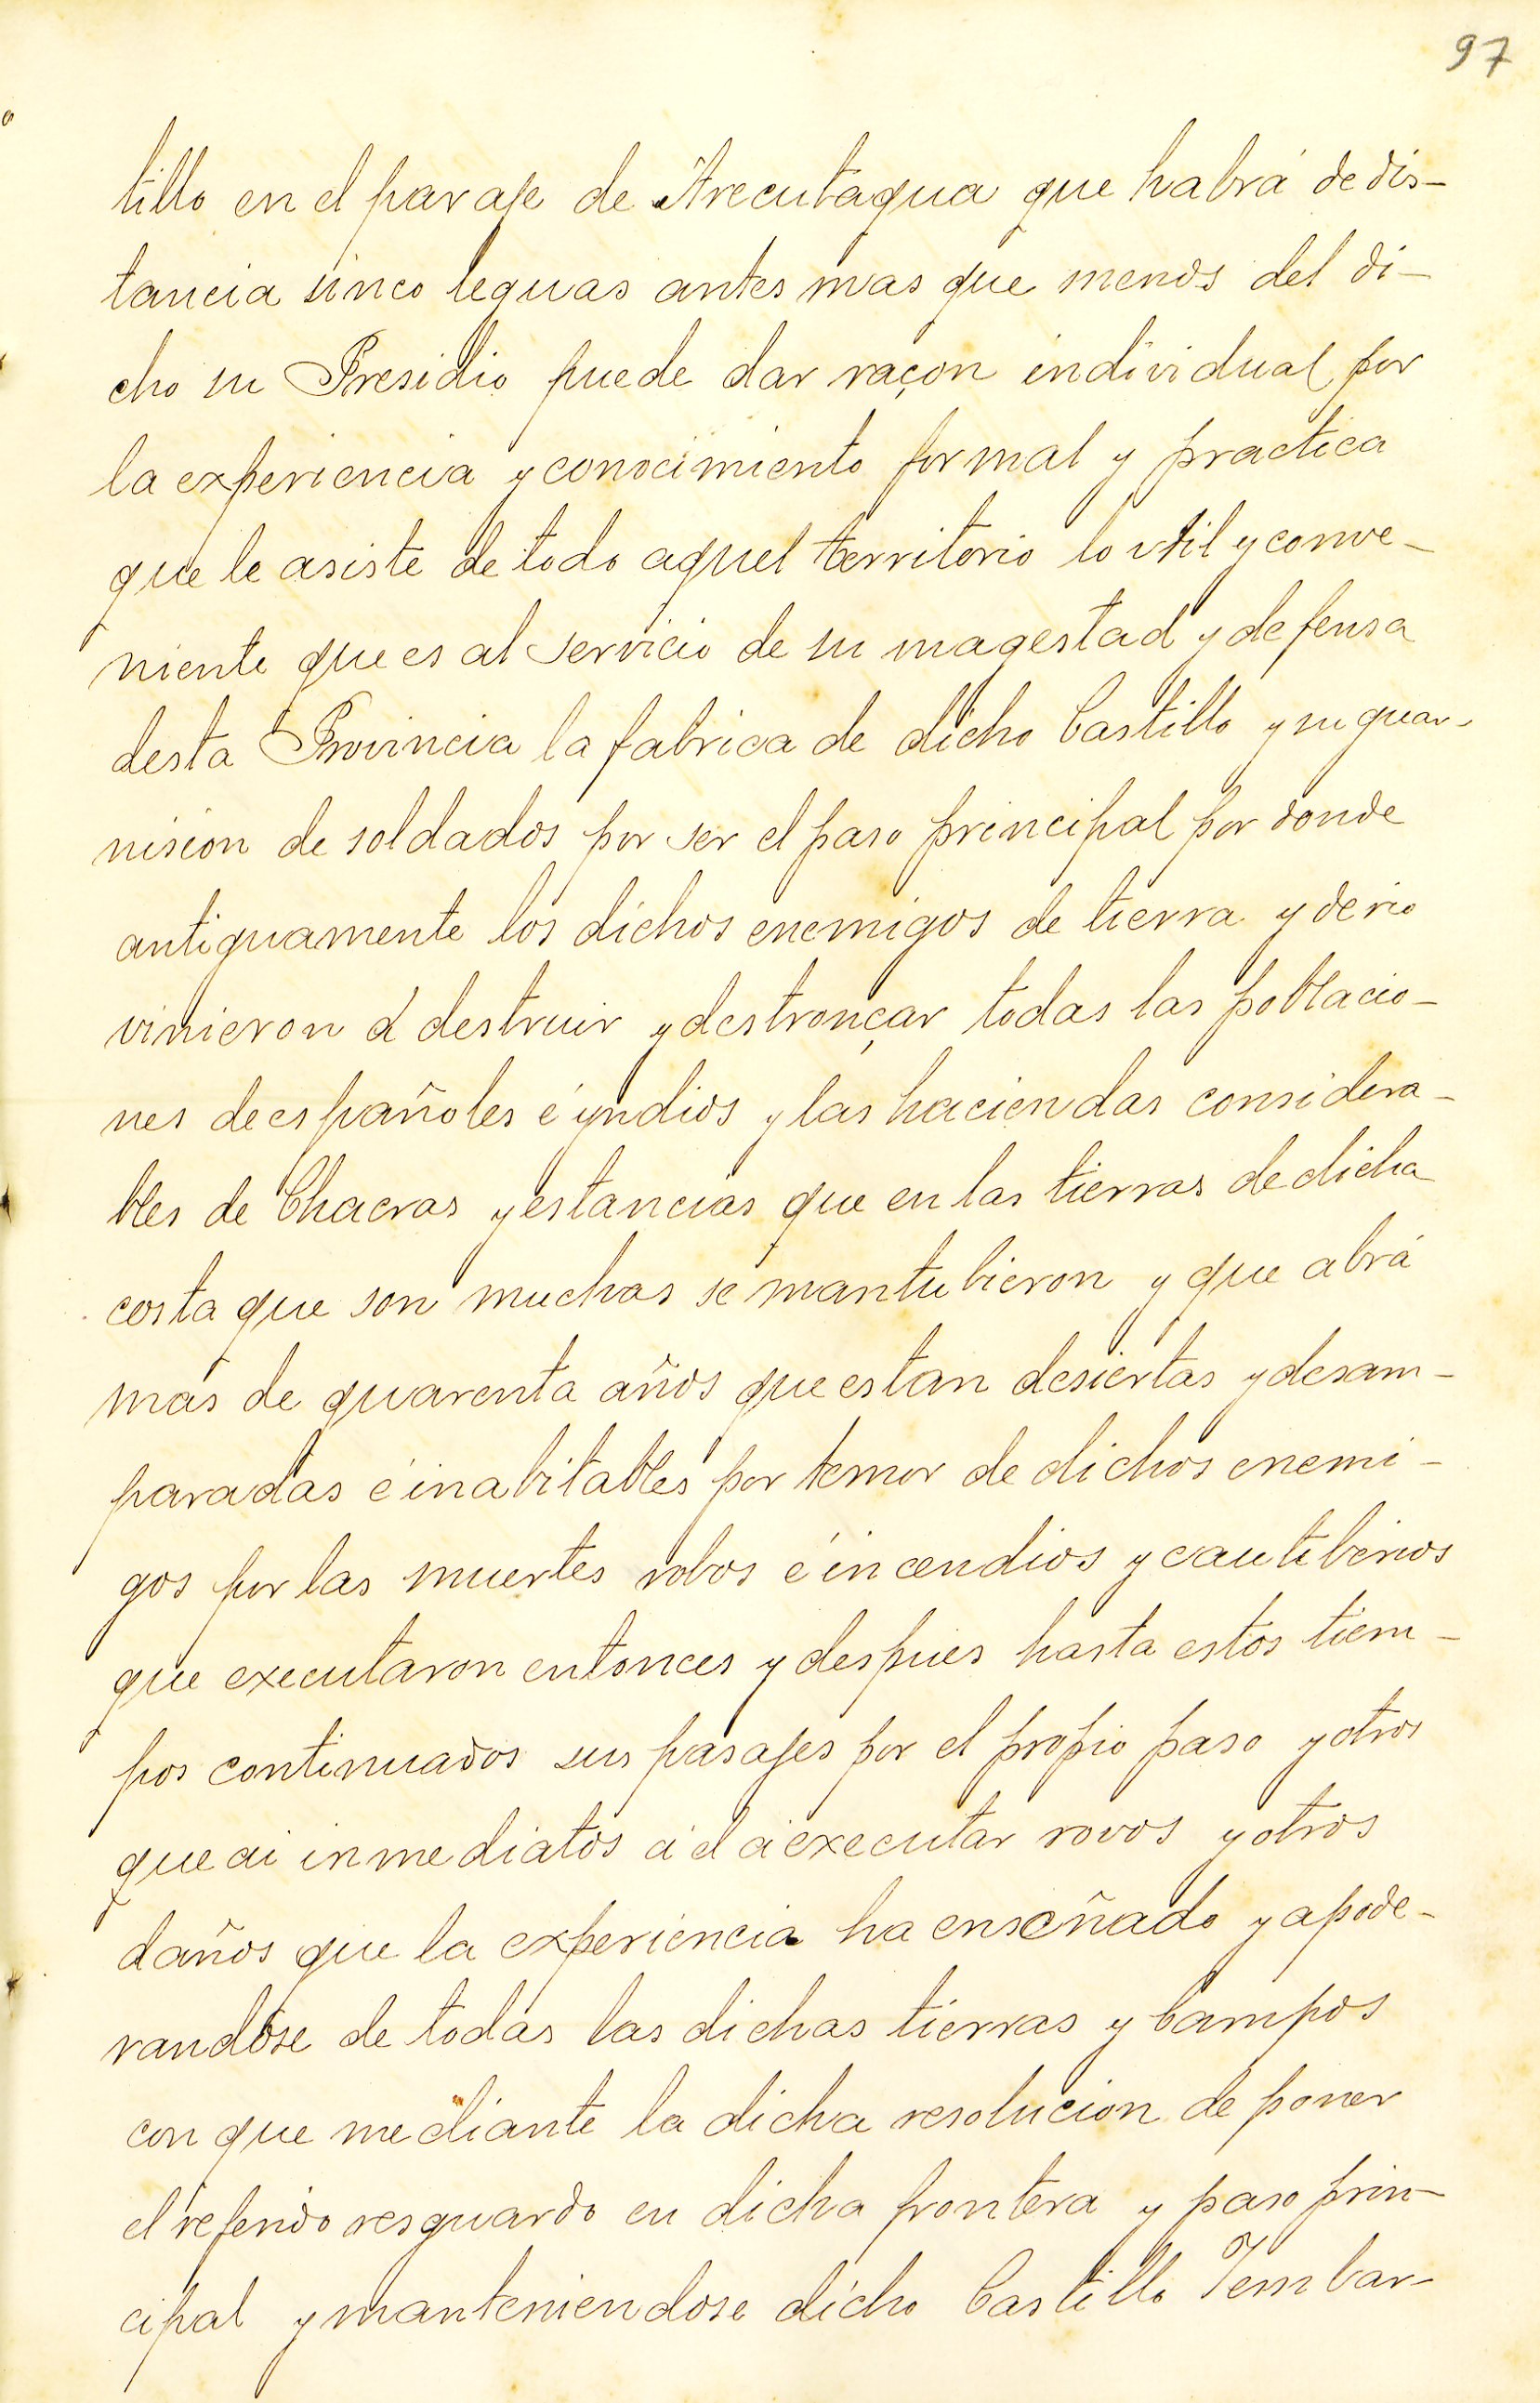 97
tillo en el paraje de Arecutagua que habrá de dis-
tancia sinco leguas antes mas que menos del di-
cho su Presidio puede dar raçon individual por
la experiencia y conocimiento formal y practica
que le asiste de todo aquel territorio lo vtil y conve-
niente que es al servicio de su magestad y defensa
desta Provincia la fabrica de dicho Castillo y su guar-
nision de soldados por ser el paso principal por donde
antiguamente los dichos enemigos de tierra y de rio
vinieron á destruir y destronçar todas las poblacio-
nes de españoles é yndios y las haciendas considera-
bles de Chacras y estancias que en las tierras de dicha
costa que son muchas se mantubieron y que abrá
mas de quarenta años que estan desiertas y desam-
paradas é inabitables por temor de dichos enemi-
gos por las muertes robos é incendios y cautiberios
que executaron entonces y despues hasta estos tiem-
pos continuados sus pasajes por el propio paso y otros
que ai inmediatos á el á executar rovos y otros
daños que la experiencia ha enseñado y apode-
randose de todas las dichas tierras y Campos
con que mediante la dicha resolucion de poner
el referido resguardo en dicha frontera y paso prin-
cipal y manteniendose dicho Castillo Y embar-